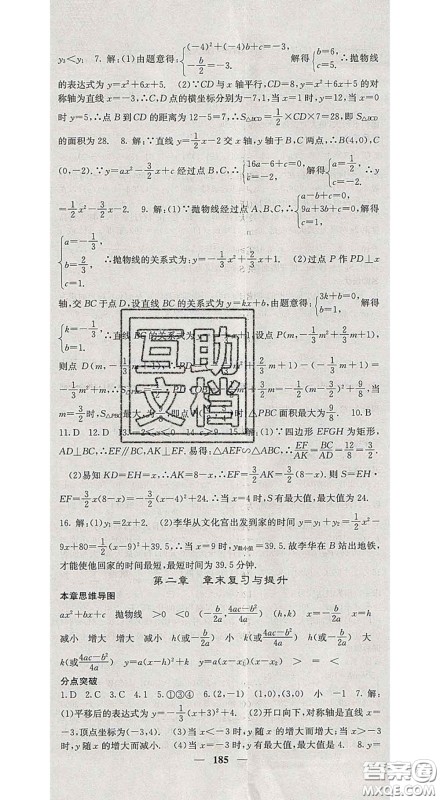 y₃<y₁ 7. 解:(1)由题意得:{(-4)²+(-4)b+c=-3, -b/2=-3, 解得{b=6, c=5. ∴抛物线
的表达式为 y=x²+6x+5. (2)∵CD与x轴平行,CD=8,y=x²+6x+5的对
称轴为直线x=-3,∴C、D点的横坐标分别为-7,1,当x=1时,y=12,当x=0
时y=5,∴点B到CD的距离为12-5=7,∴S△BCD=1/2×CD×7=28,即S△BCD
的面积为28. 8. 解:∵直线y=1/2x-2交x轴,y轴于B、C两点,∴B(4,0),C
(0,-2). ∵y=ax²-3/2x+c经过点B、C,∴{16a-6+c=0, c=-2. 解得{a=1/2, c=-2. ∴y
=1/2x²-3/2x-2. 9. 解:(1)∵抛物线经过点A、B、C,∴{a-b+c=0, 9a+3b+c=0, c=1, 解得
{a=-1/3, b=2/3, c=1. ∴抛物线的关系式为:y=-1/3x²+2/3x+1. (2)过点P作PD⊥x
轴,交BC于点D,设直线BC的关系式为y=kx+b,由题意得:{3k+b=0, b=1, 解得
{k=-1/3, b=1. ∴直线BC的关系式为y=-1/3x+1,设点P(m,-1/3m²+2/3m+1),
则点D(m,-1/3m+1),
当
m=3/2时,S△PBC最大为9/8,即点P
时,△PBC面积最大为9/8. 10. B
11. D 12. D
15. 解:(1)∵四边形EFGH为矩形,
AD⊥BC,∴EF∥BC,AK⊥EF. 易得:△AEF∽△ABC,∴EF/AK=BC/AD=12/8=3/2.
(2)易知KD=EH=x,∴AK=8-x,∵EF/AK=3/2,∴EF=3/2(8-x),则S=EH·
EF=3/2x(8-x)=-3/2(x-4)²+24,∴当x=4时,S有最大值,最大值为24.
16. 解:(1)y₁=2x+2. (2)李华从文化宫出发到家的时间y=y₁+y₂=1/2x²
-9x+80=1/2(x-9)²+39.5,∴当x=9时,y最小值=39.5,故李华在B站出地铁,
才能使他回家的时间最短,最短时间为39.5分钟.
第二章 章末复习与提升
本章思维导图
ax²+bx+c 抛物线 >0 <0 (-b/2a, (4ac-b²)/4a) (h,k) x=-b/2a x=h
减小 增大 增大 减小 减小 增大 增大 减小 -b/2a h (4ac-b²)/4a k -b/2a
h k(或(4ac-b²)/4a) y=a(x-h)²+k y=a(x-x₁)(x-x₂) > = <
分点突破
1. D 2. C 3. C 4. 1 5. ①③④ 6. (2,-1) (1,0)(3,0) 小 -1 7. 解:
(1)平移后的表达式为y=(x+3)²+4. (2)开口向下,对称轴是直线x=-3,
顶点坐标为(-3,4). (3)当x<-3时,y随x的增大而增大;当x>-3
时,y随x的增大而减小. (4)当x=-3时,y有最大值,最大值是4. 8. y=
185
互助
文档
答案圈
MXQE.COM